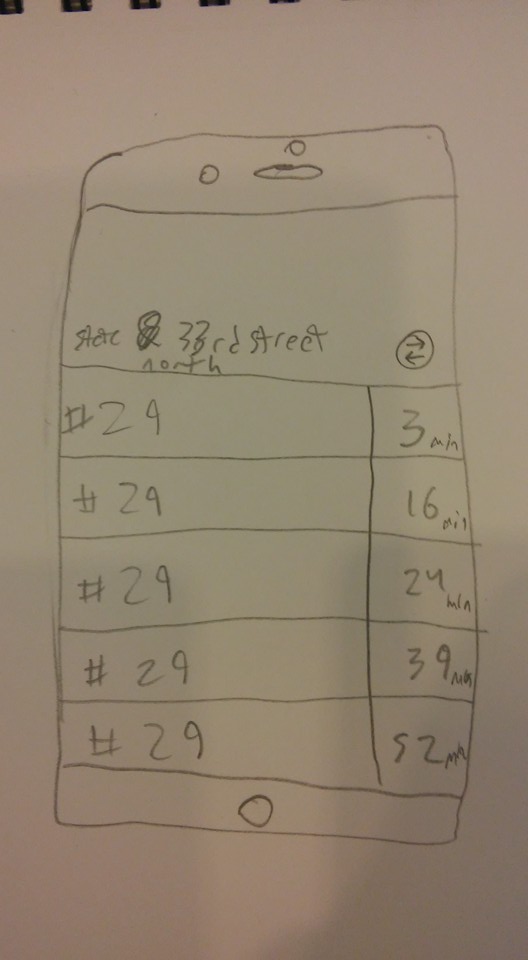 state & 33rd street
north
#29 3 min
#29 16 min
#29 24 min
#29 39 min
#29 52 min